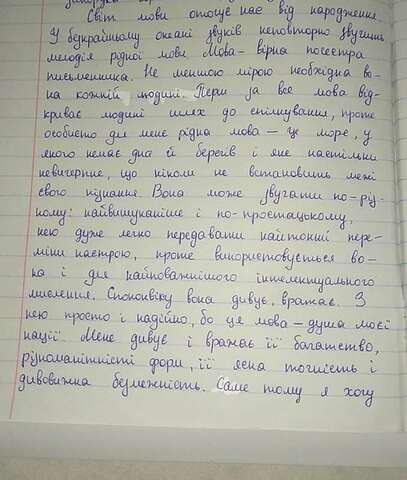 Світ мови оточує нас від народження.
У безкрайньому океані звуків неповторно звучить
мелодія рідної мови. Мова - вірна посестра
письменника. Не меншою мірою необхідна во-
на кожній людині. Перш за все мова від-
криває людині шлях до спілкування, проте
особисто для мене рідна мова - це море, у
якого немає дна й берегів і яке настільки
невичерпне, що ніколи не встановить межі
свого пізнання. Вона може звучати по-різ-
ному: найвишуканіше і по-простацькому,
нею дуже легко передавати найтонкі пере-
міни настрою, проте використовується во-
на і для найповажнішого інтелектуального
мислення. Споконвіку вона дивує, вражає. З
нею просто і надійно, бо ця мова - душа моєї
нації. Мене дивує і вражає її багатство,
різноманітність форм, її ясна точність і
дивовижна безмежність. Саме тому я хочу